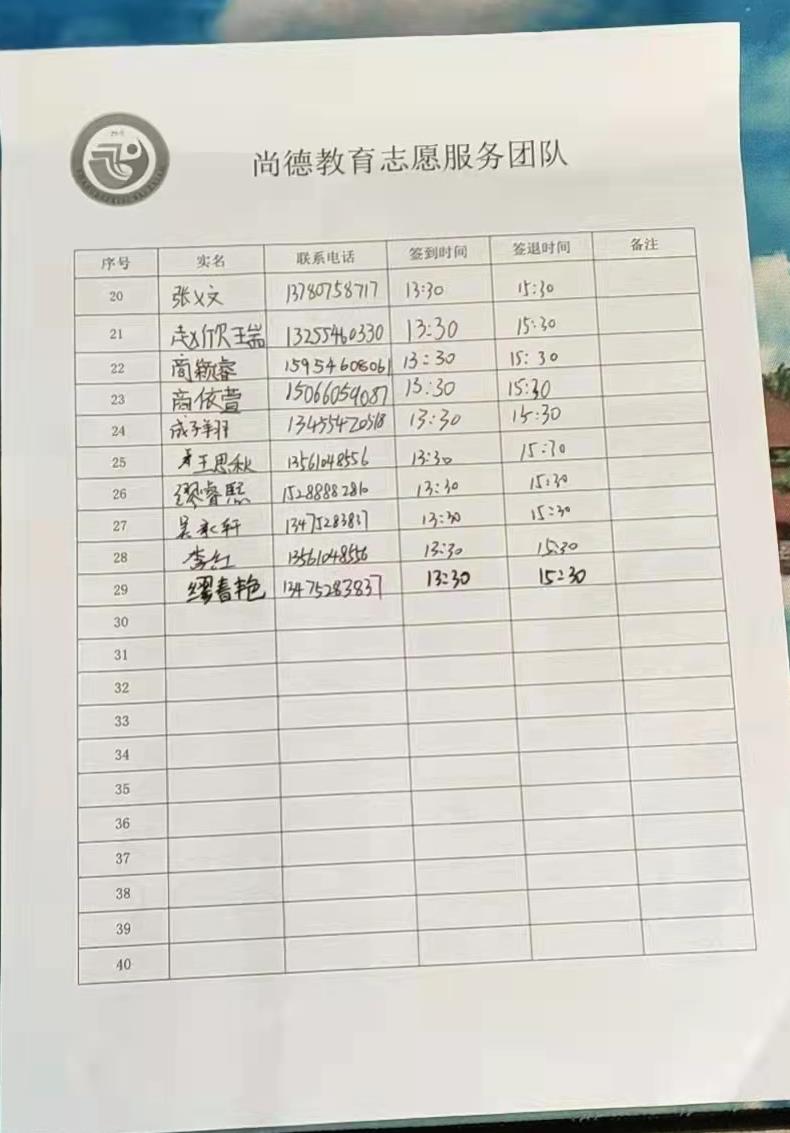 尚德教育志愿服务团队
序号 实名 联系电话 签到时间 签退时间 备注
20 张义文 13780758717 13:30 15:30
21 赵欣瑞 13255460330 13:30 15:30
22 商颖睿 15954608061 13:30 15:30
23 商依萱 15066059087 13:30 15:30
24 成子翔 13455420518 13:30 15:30
25 王思秋 13561048556 13:30 15:30
26 缪睿熙 15288882810 13:30 15:30
27 吴永轩 13475283837 13:30 15:30
28 李红 13561048556 13:30 15:30
29 缪春艳 13475283837 13:30 15:30
30
31
32
33
34
35
36
37
38
39
40